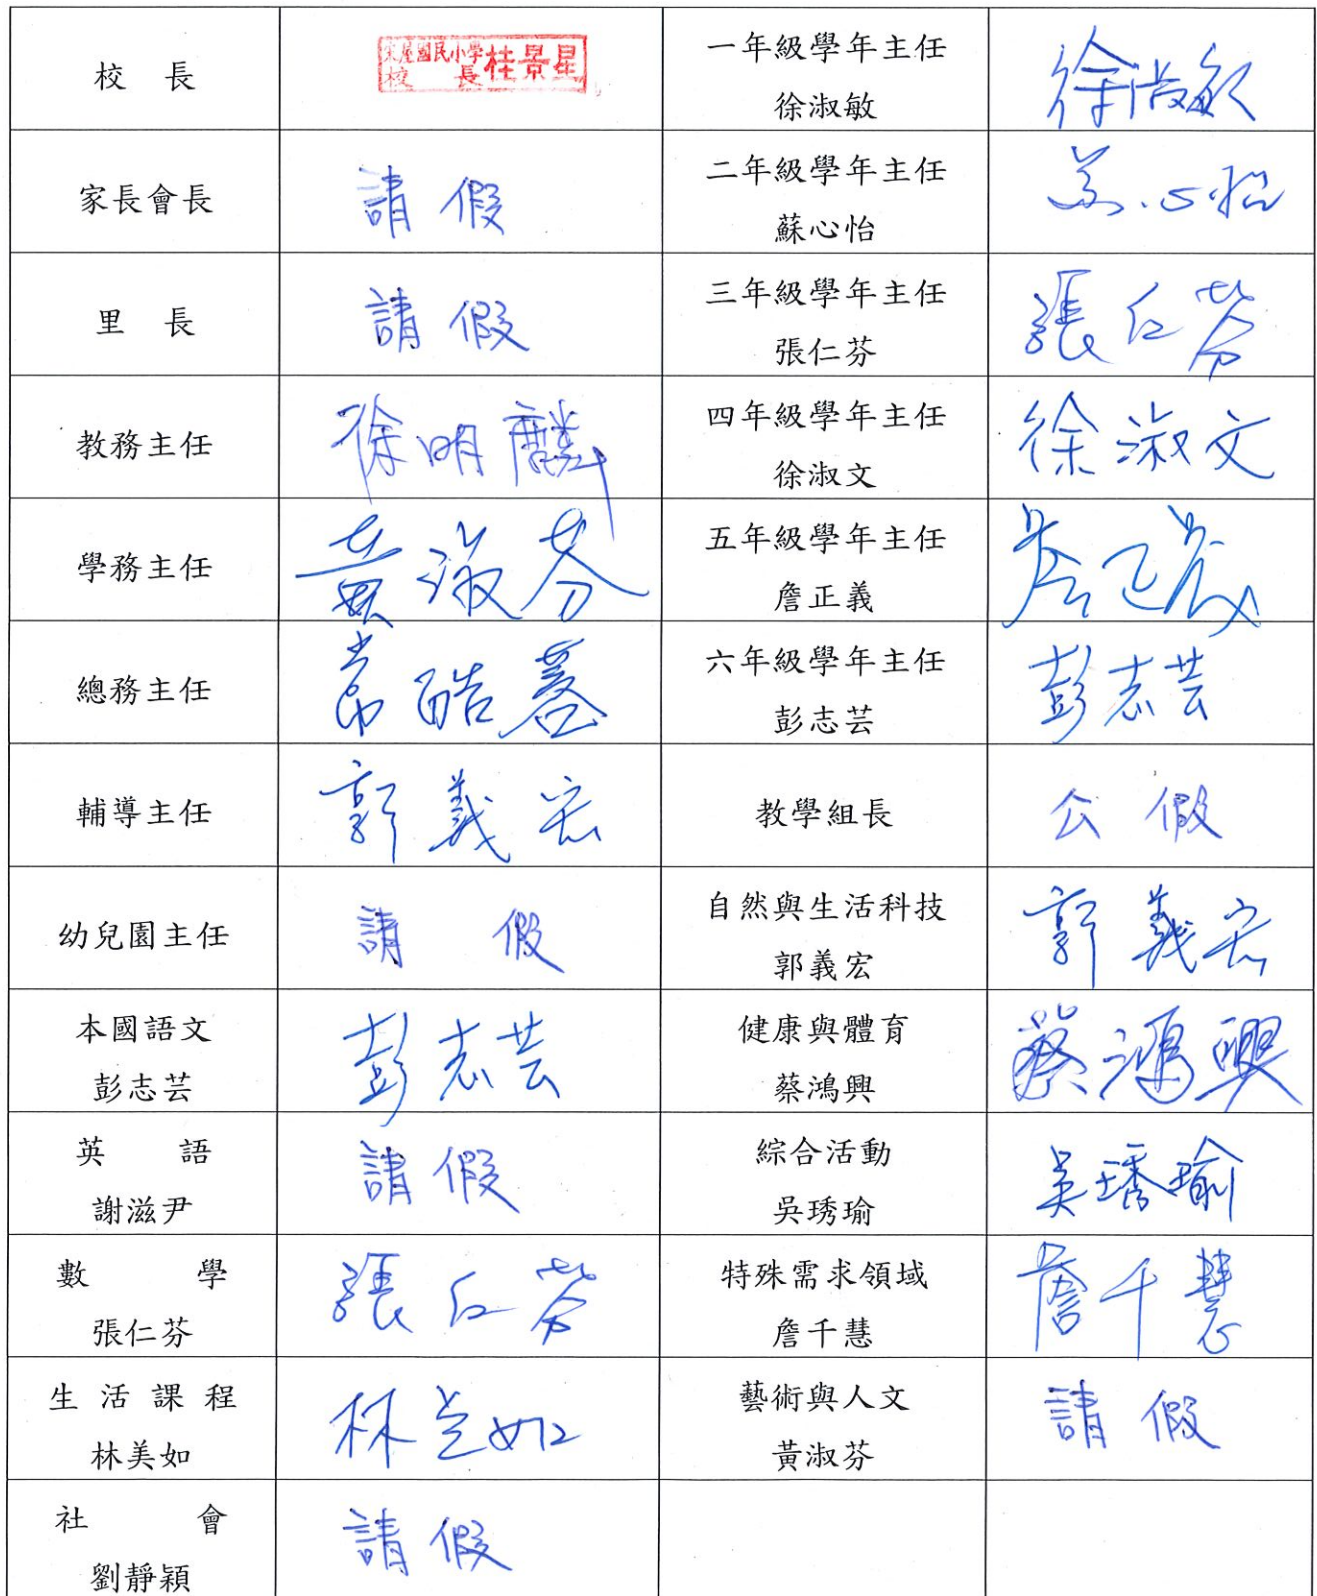 校 長
宋屋國民小學
校 長 桂景星
一年級學年主任
徐淑敏
徐淑敏
家長會長
請假
二年級學年主任
蘇心怡
蘇心怡
里 長
請假
三年級學年主任
張仁芬
張仁芬
教務主任
徐明麟
四年級學年主任
徐淑文
徐淑文
學務主任
黃淑芬
五年級學年主任
詹正義
詹正義
總務主任
六年級學年主任
彭志芸
彭志芸
輔導主任
郭義宏
教學組長
公假
幼兒園主任
請 假
自然與生活科技
郭義宏
郭義宏
本國語文
彭志芸
彭志芸
健康與體育
蔡鴻興
蔡鴻興
英 語
謝滋尹
請假
綜合活動
吳琇瑜
吳琇瑜
數 學
張仁芬
張仁芬
特殊需求領域
詹千慧
詹千慧
生活課程
林美如
林美如
藝術與人文
黃淑芬
請假
社 會
劉靜穎
請假